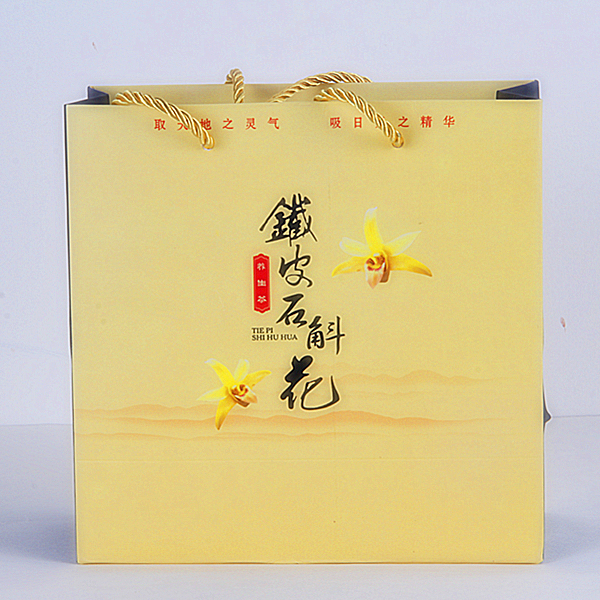 取天地之灵气 吸日 之精华
鐵皮石斛花
养生茶
TIE PI
SHI HU HUA